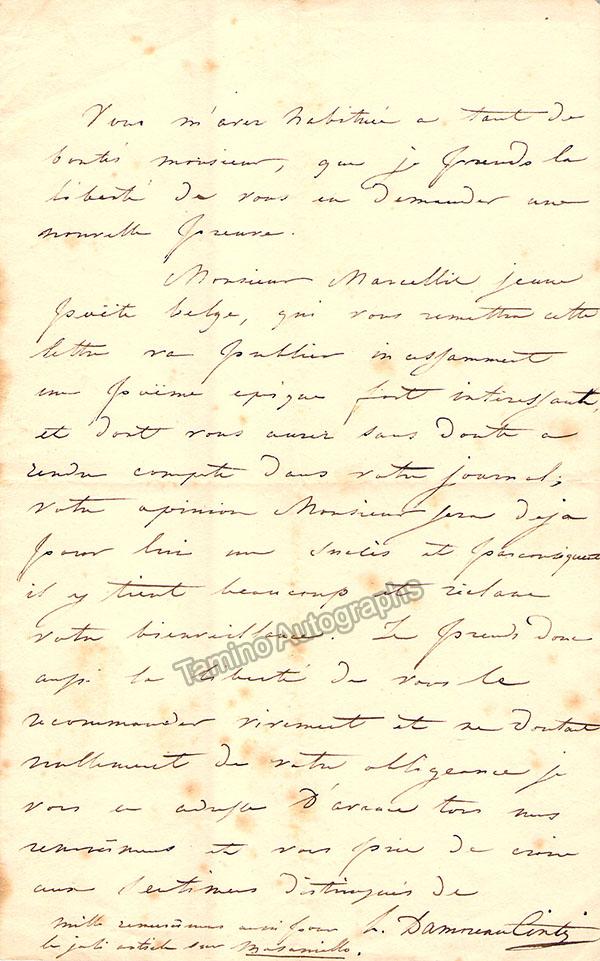 Vous m'avez habituée a tant de
bontés monsieur, que je prends la
liberté de vous en demander une
nouvelle preuve.
Monsieur Marcellis jeune
poëte belge, qui vous remettra cette
lettre va publier incessamment
un poëme epique fort intéressant,
et dont vous aurez sans doute a
rendre compte dans votre journal;
votre opinion Monsieur sera deja
pour lui un succès et parconséquent
il y tient beaucoup et réclame
votre bienveillance. Je prends donc
aussi la liberté de vous le
recommander vivement et ne doutant
nullement de votre obligeance je
vous en adresse d'avance tous mes
remercimens et vous prie de croire
aux sentimens distingués de
L. Damoreau Cinti
mille remercimens aussi pour
le joli article sur Masaniello.
Tamino Autographs